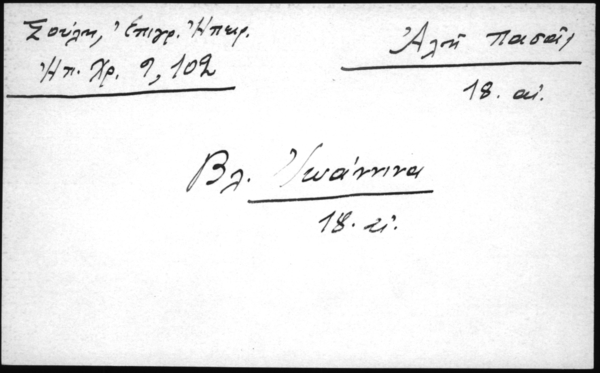 Σούλη, Ἐπιγρ. Ἠπειρ.
Ἠπ. Χρ. 9, 102
Ἀλῆ πασᾶς
18. αἰ.
Βλ. Ἰωάννινα
18. αἰ.